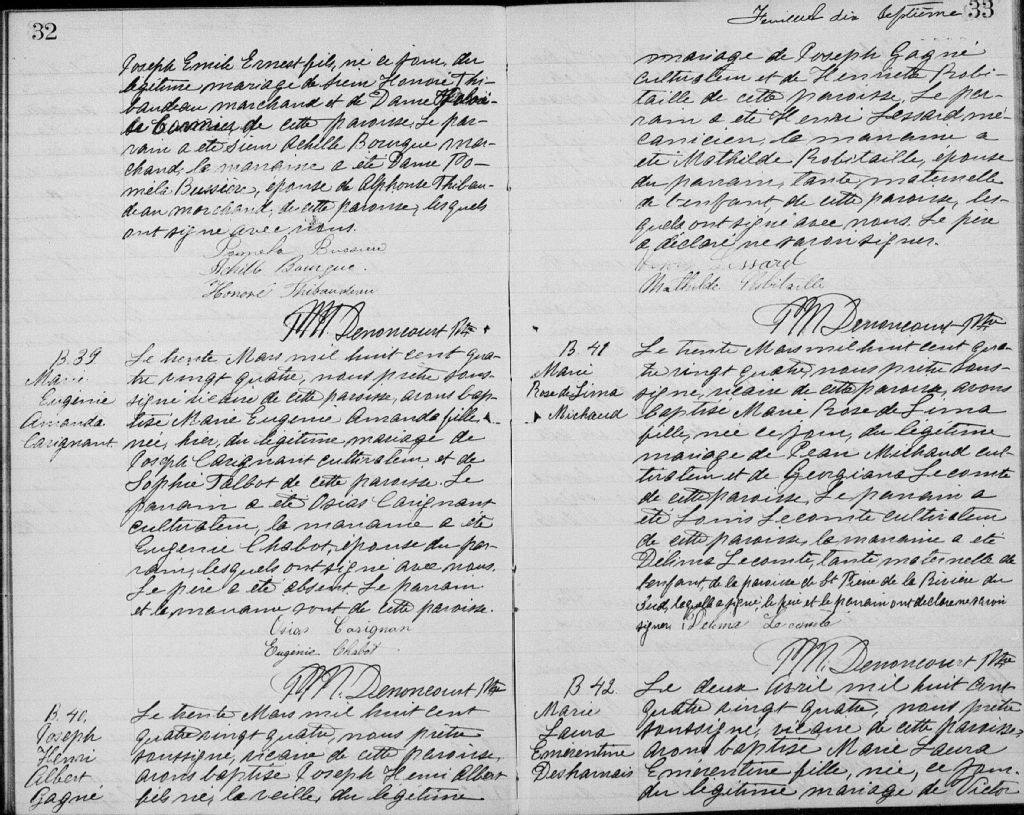 32
Joseph Emile Ernest fils, né ce jour, du
légitime mariage de sieur Honoré Thi-
baudeau marchand et de Dame
Cormier de cette paroisse. Le par-
rain a été sieur Achille Bourque mar-
chand, la marraine a été Dame Po-
méla Bussière, épouse de Alphonse Thibau-
deau marchand, de cette paroisse, lesquels
ont signé avec nous.
Paméla Bussiere
Achille Bourque.
Honoré Thibaudeau
Denoncourt Ptre
B 39
Marie
Eugénie
Amanda
Carignant
Le trente Mars mil huit cent qua-
tre vingt quatre, nous prêtre sous-
signé vicaire de cette paroisse, avons bap-
tisé Marie Eugenie Amanda fille,
née, hier, du légitime mariage de
Joseph Carignant cultivateur et de
Sophie Talbot de cette paroisse. Le
parrain a été Osias Carignant
cultivateur, la marraine a été
Eugenie Chabot, épouse du par-
rain, lesquels ont signé avec nous.
Le père a été absent. Le parrain
et la marraine sont de cette paroisse.
Osias Carignan
Eugénie Chabot
Denoncourt Ptre
B. 40.
Joseph
Henri
Albert
Gagné
Le trente Mars mil huit cent
quatre vingt quatre, nous prêtre
soussigné, vicaire de cette paroisse,
avons baptisé Joseph Henri Albert
fils né, la veille, du légitime
Feuillet dix septième 33
mariage de Joseph Gagné
cultivateur et de Henriette Robi-
taille de cette paroisse. Le par-
rain a été Henri Lessard, mé-
canicien, la marraine a
été Mathilde Robitaille, épouse
du parrain, tante maternelle
de l'enfant de cette paroisse, les-
quels ont signé avec nous. Le père
a déclaré ne savoir signer.
Lessard
Mathilde Robitaille
Denoncourt Ptre
B. 41
Marie
Rose de Lima
Michaud
Le trente Mars mil huit cent qua-
tre vingt quatre, nous prêtre sous-
signé, vicaire de cette paroisse, avons
baptisé Marie Rose de Lima
fille, née ce jour, du légitime
mariage de Jean Michaud cul-
tivateur et de Georgiana Lecomte
de cette paroisse. Le parrain a
été Louis Lecomte cultivateur
de cette paroisse, la marraine a été
Délima Lecomte, tante maternelle de
l'enfant, de la paroisse de St Pierre de la Rivière du
Sud, laquelle a signé, le père et le parrain ont déclaré ne savoir
signer. Delima Lecomte
Denoncourt Ptre
B 42.
Marie
Laura
Emérentine
Desharnais
Le deux Avril mil huit cent
quatre vingt quatre, nous prêtre
soussigné, vicaire de cette paroisse,
avons baptisé Marie Laura
Emérentine fille, née, ce jour,
du légitime mariage de Victor